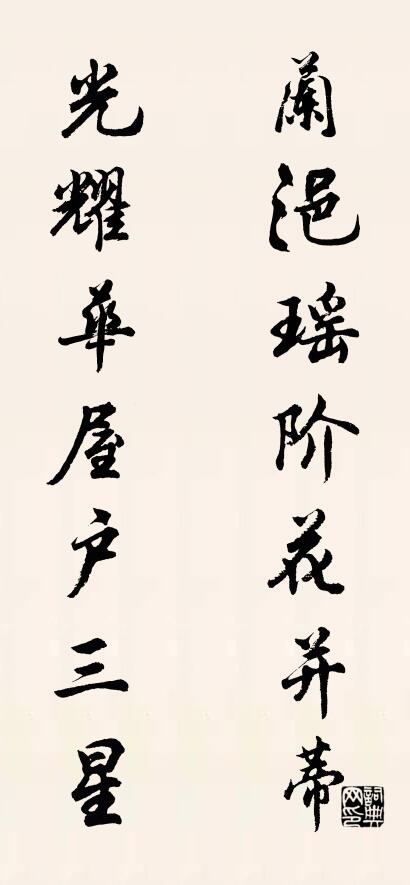 蘭浥瑶阶花并蒂
光耀華屋户三星
詞典网印